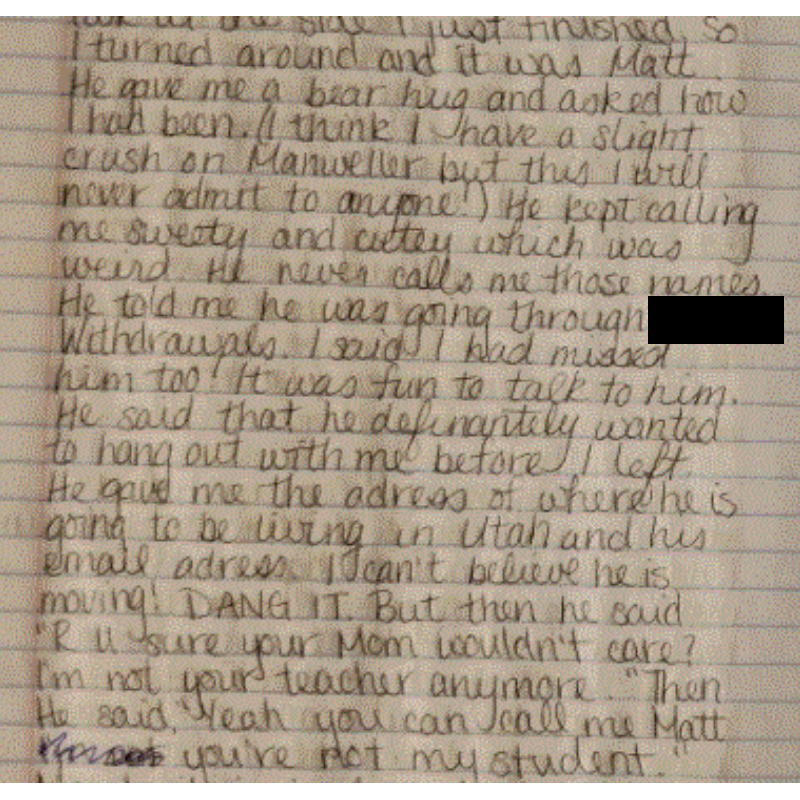 look at the side I just finished. So
I turned around and it was Matt.
He gave me a bear hug and asked how
I had been. (I think I have a slight
crush on Manweller but this I will
never admit to anyone!) He kept calling
me sweety and cutey which was
weird. He never calls me those names.
He told me he was going through
Withdrawals. I said I had missed
him too! It was fun to talk to him.
He said that he definantely wanted
to hang out with me before I left.
He gave me the adress of where he is
going to be living in Utah and his
email adress. I can't believe he is
moving! DANG IT. But then he said
"R U sure your Mom wouldn't care?
I'm not your teacher anymore." Then
He said, "Yeah you can call me Matt
you're not my student."